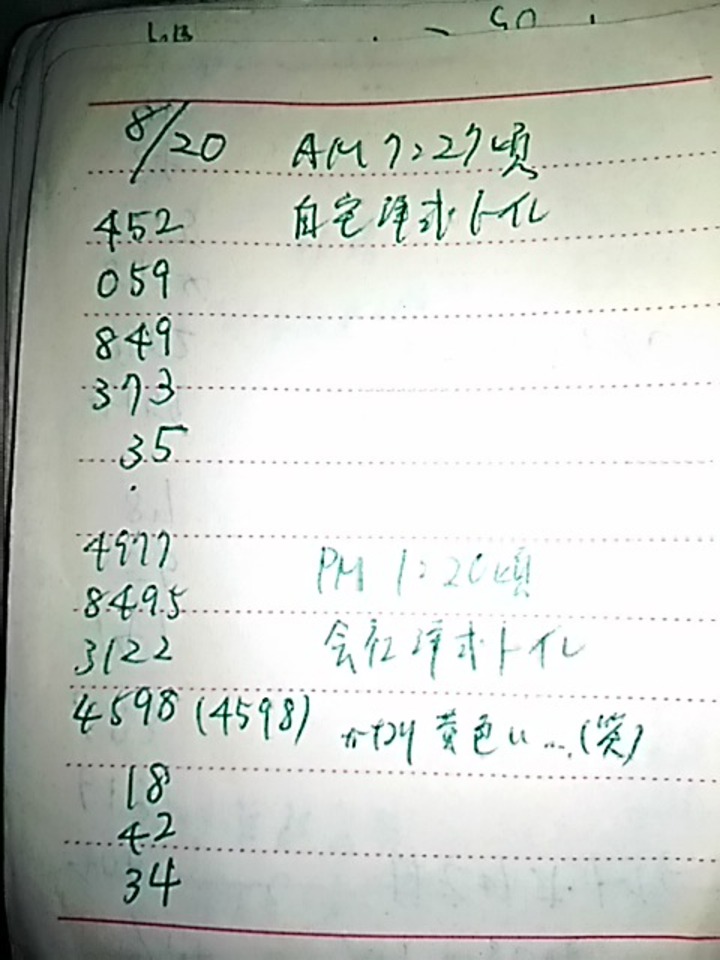 8/20 AM 7:27頃
452 自宅洋式トイレ
059
849
373
35
.
4977
8495 PM 1:20頃
3122 会社洋式トイレ
4598 (4598) かなり黄色い....(笑)
18
42
34